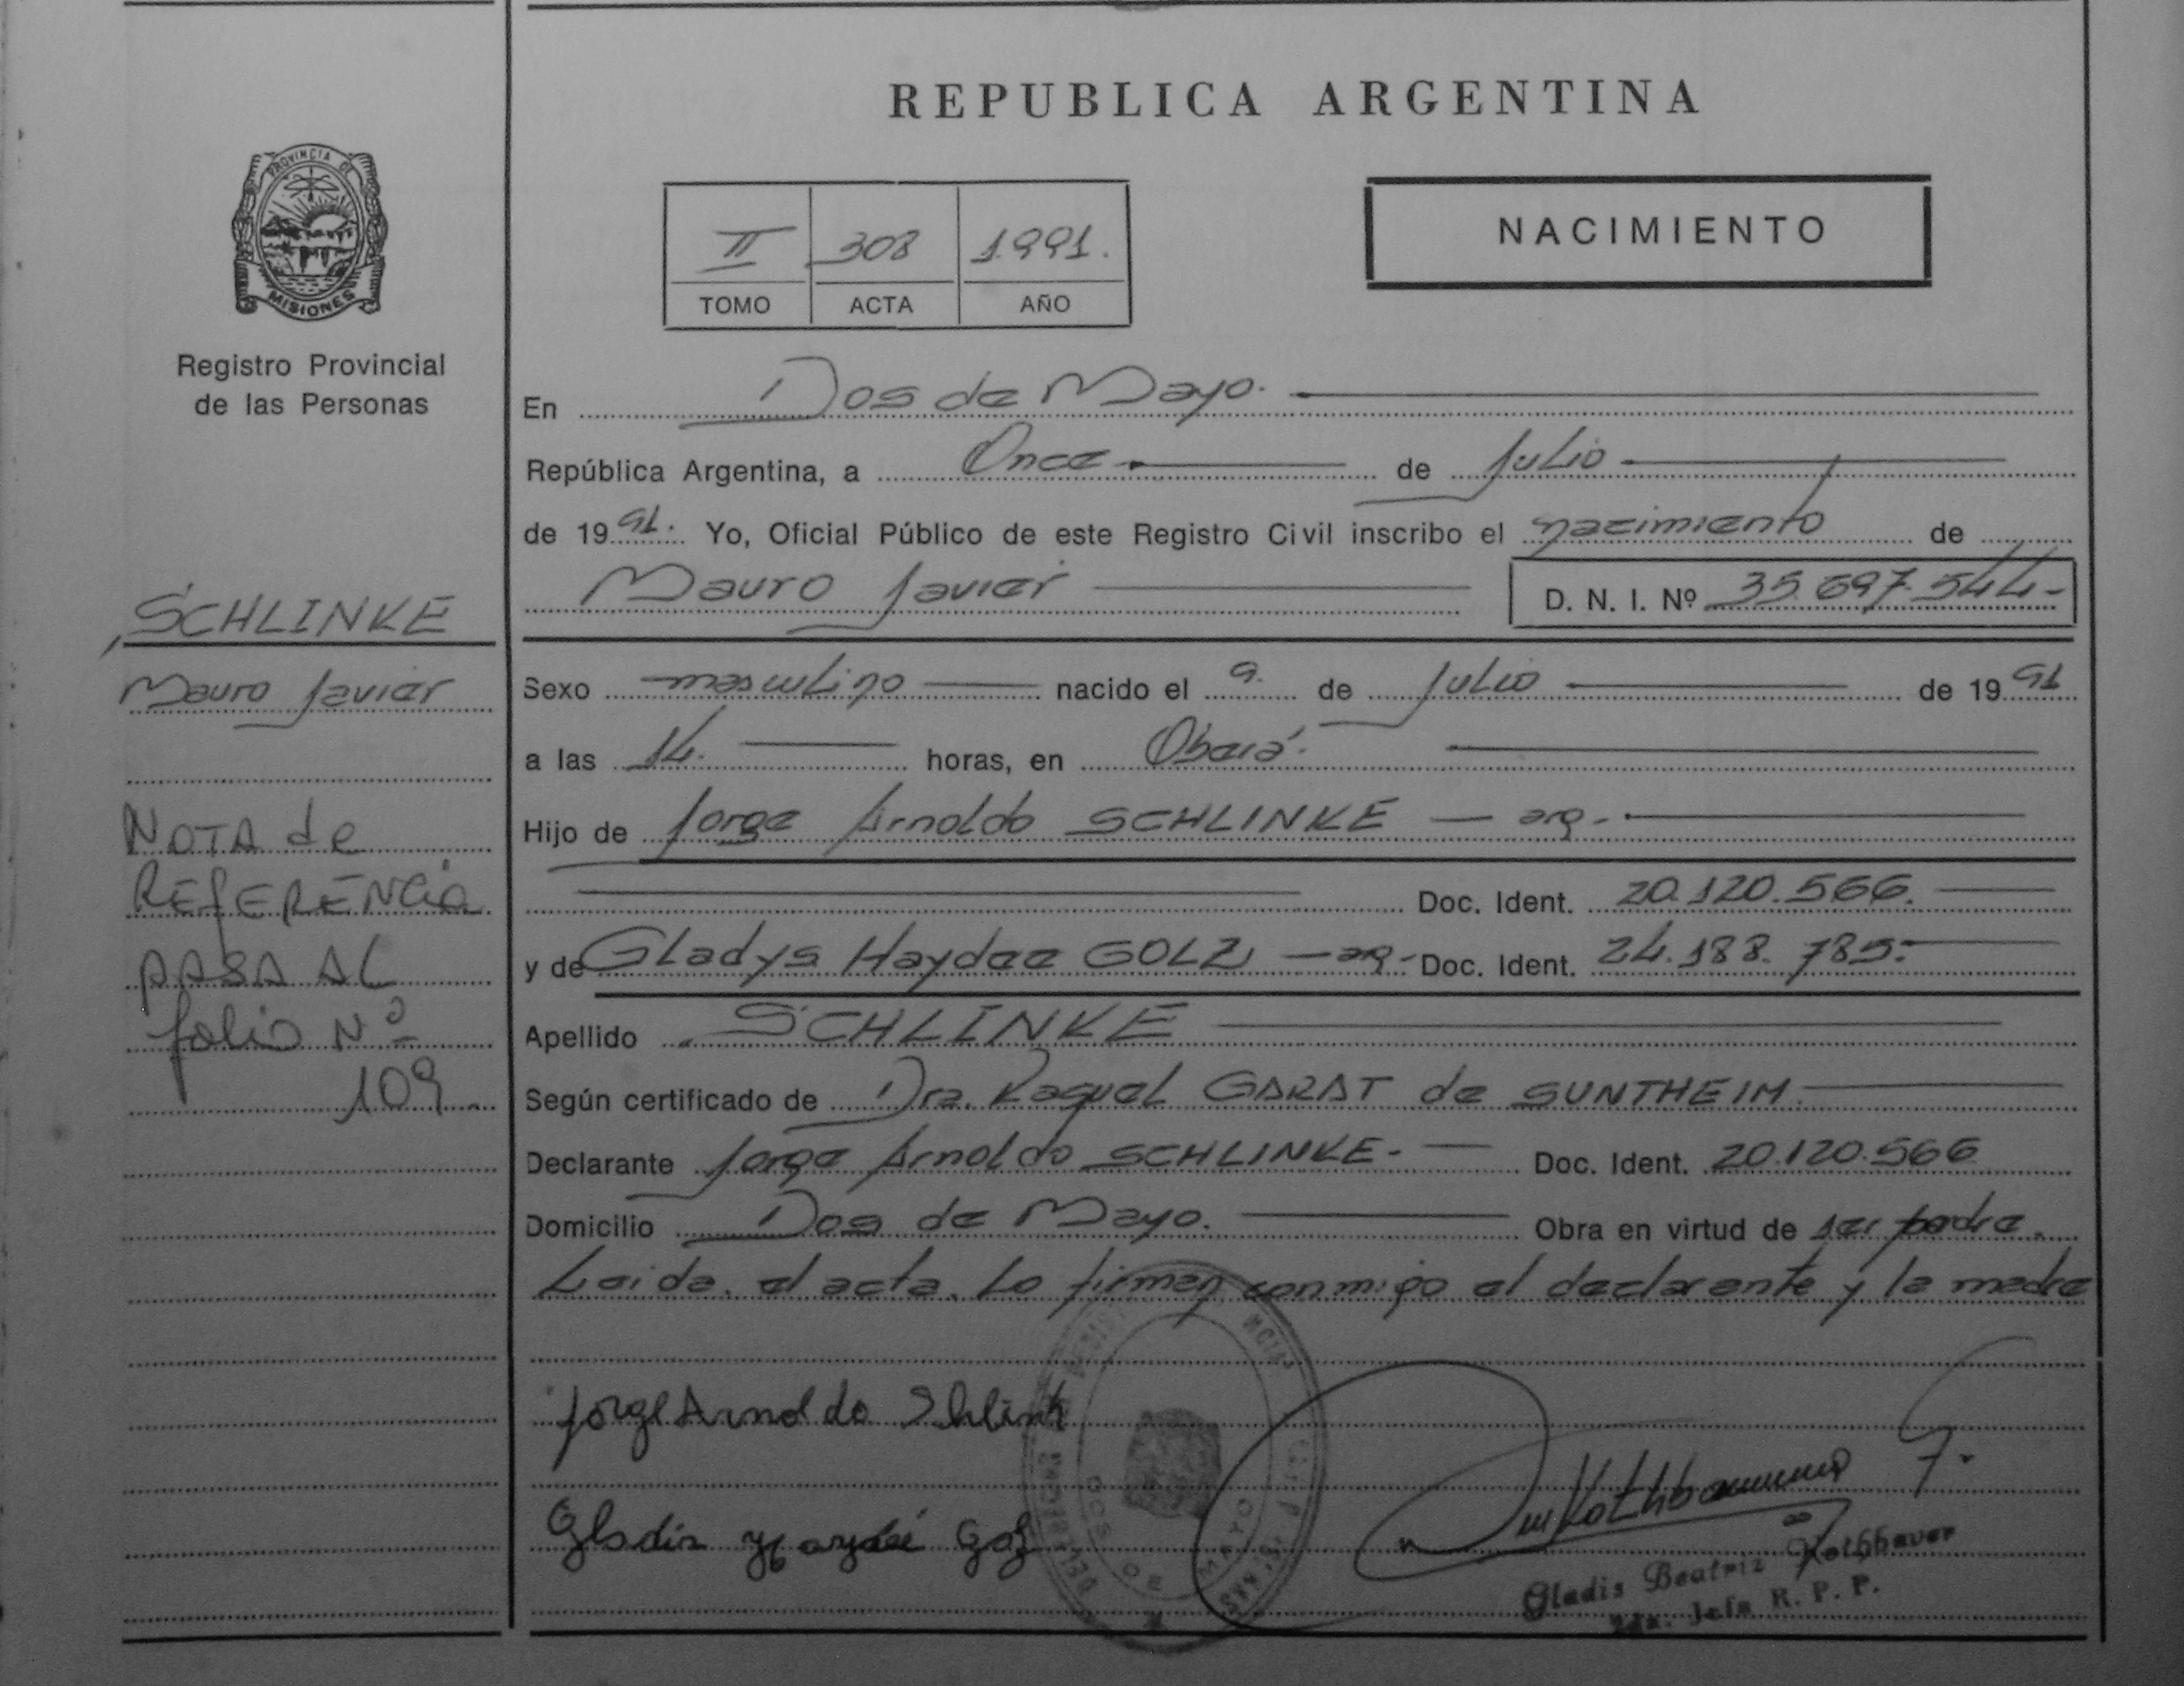 REPUBLICA ARGENTINA
PROVINCIA DE
MISIONES
Registro Provincial
de las Personas
II 308 1991.
TOMO ACTA AÑO
NACIMIENTO
En Dos de Mayo.
República Argentina, a Once de Julio
de 1991. Yo, Oficial Público de este Registro Civil inscribo el nacimiento de
Mauro Javier D. N. I. Nº 35.697.544-
SCHLINKE
Mauro Javier
NOTA de
REfERENCia
PASA AL
folio Nº
109.
Sexo masculino nacido el 9. de Julio de 1991
a las 14. horas, en Oberá.
Hijo de Jorge Arnoldo SCHLINKE — arg.-
Doc. Ident. 20.120.566.
y de Gladys Haydee GOLZ — arg.- Doc. Ident. 24.188.785.-
Apellido SCHLINKE
Según certificado de Dra. Raquel GARAT de SUNTHEIM.
Declarante Jorge Arnoldo SCHLINKE.- Doc. Ident. 20.120.566
Domicilio Dos de Mayo. Obra en virtud de ser padre.
Leida el acta, lo firman conmigo el declarante y la madre
Jorge Arnoldo Shlink
Gladis Haydeé Golz
DOS DE MAYO
Gladis Beatriz Rothbauer
2da. Jefa R. P. P.